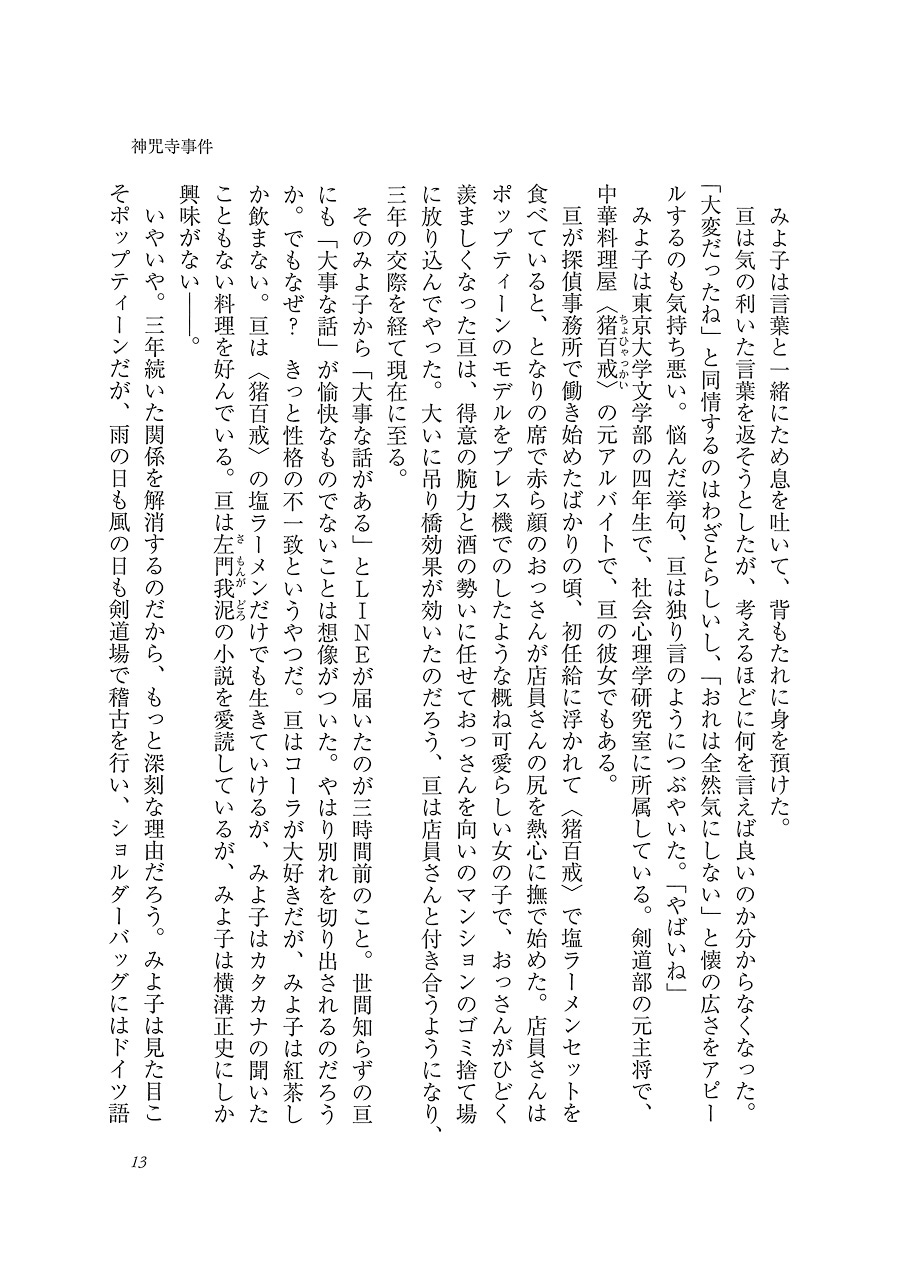 神咒寺事件
みよ子は言葉と一緒にため息を吐いて、背もたれに身を預けた。
亘は気の利いた言葉を返そうとしたが、考えるほどに何を言えば良いのか分からなくなった。
「大変だったね」と同情するのはわざとらしいし、「おれは全然気にしない」と懐の広さをアピー
ルするのも気持ち悪い。悩んだ挙句、亘は独り言のようにつぶやいた。「やばいね」
みよ子は東京大学文学部の四年生で、社会心理学研究室に所属している。剣道部の元主将で、
中華料理屋〈猪百戒〉の元アルバイトで、亘の彼女でもある。
ちょひゃっかい
亘が探偵事務所で働き始めたばかりの頃、初任給に浮かれて〈猪百戒〉で塩ラーメンセットを
食べていると、となりの席で赤ら顔のおっさんが店員さんの尻を熱心に撫で始めた。店員さんは
ポップティーンのモデルをプレス機でのしたような概ね可愛らしい女の子で、おっさんがひどく
羨ましくなった亘は、得意の腕力と酒の勢いに任せておっさんを向いのマンションのゴミ捨て場
に放り込んでやった。大いに吊り橋効果が効いたのだろう、亘は店員さんと付き合うようになり、
三年の交際を経て現在に至る。
そのみよ子から「大事な話がある」とLINEが届いたのが三時間前のこと。世間知らずの亘
にも「大事な話」が愉快なものでないことは想像がついた。やはり別れを切り出されるのだろう
か。でもなぜ？　きっと性格の不一致というやつだ。亘はコーラが大好きだが、みよ子は紅茶し
か飲まない。亘は〈猪百戒〉の塩ラーメンだけでも生きていけるが、みよ子はカタカナの聞いた
こともない料理を好んでいる。亘は左門我泥の小説を愛読しているが、みよ子は横溝正史にしか
さもんがどろ
興味がない――。
いやいや。三年続いた関係を解消するのだから、もっと深刻な理由だろう。みよ子は見た目こ
そポップティーンだが、雨の日も風の日も剣道場で稽古を行い、ショルダーバッグにはドイツ語
13